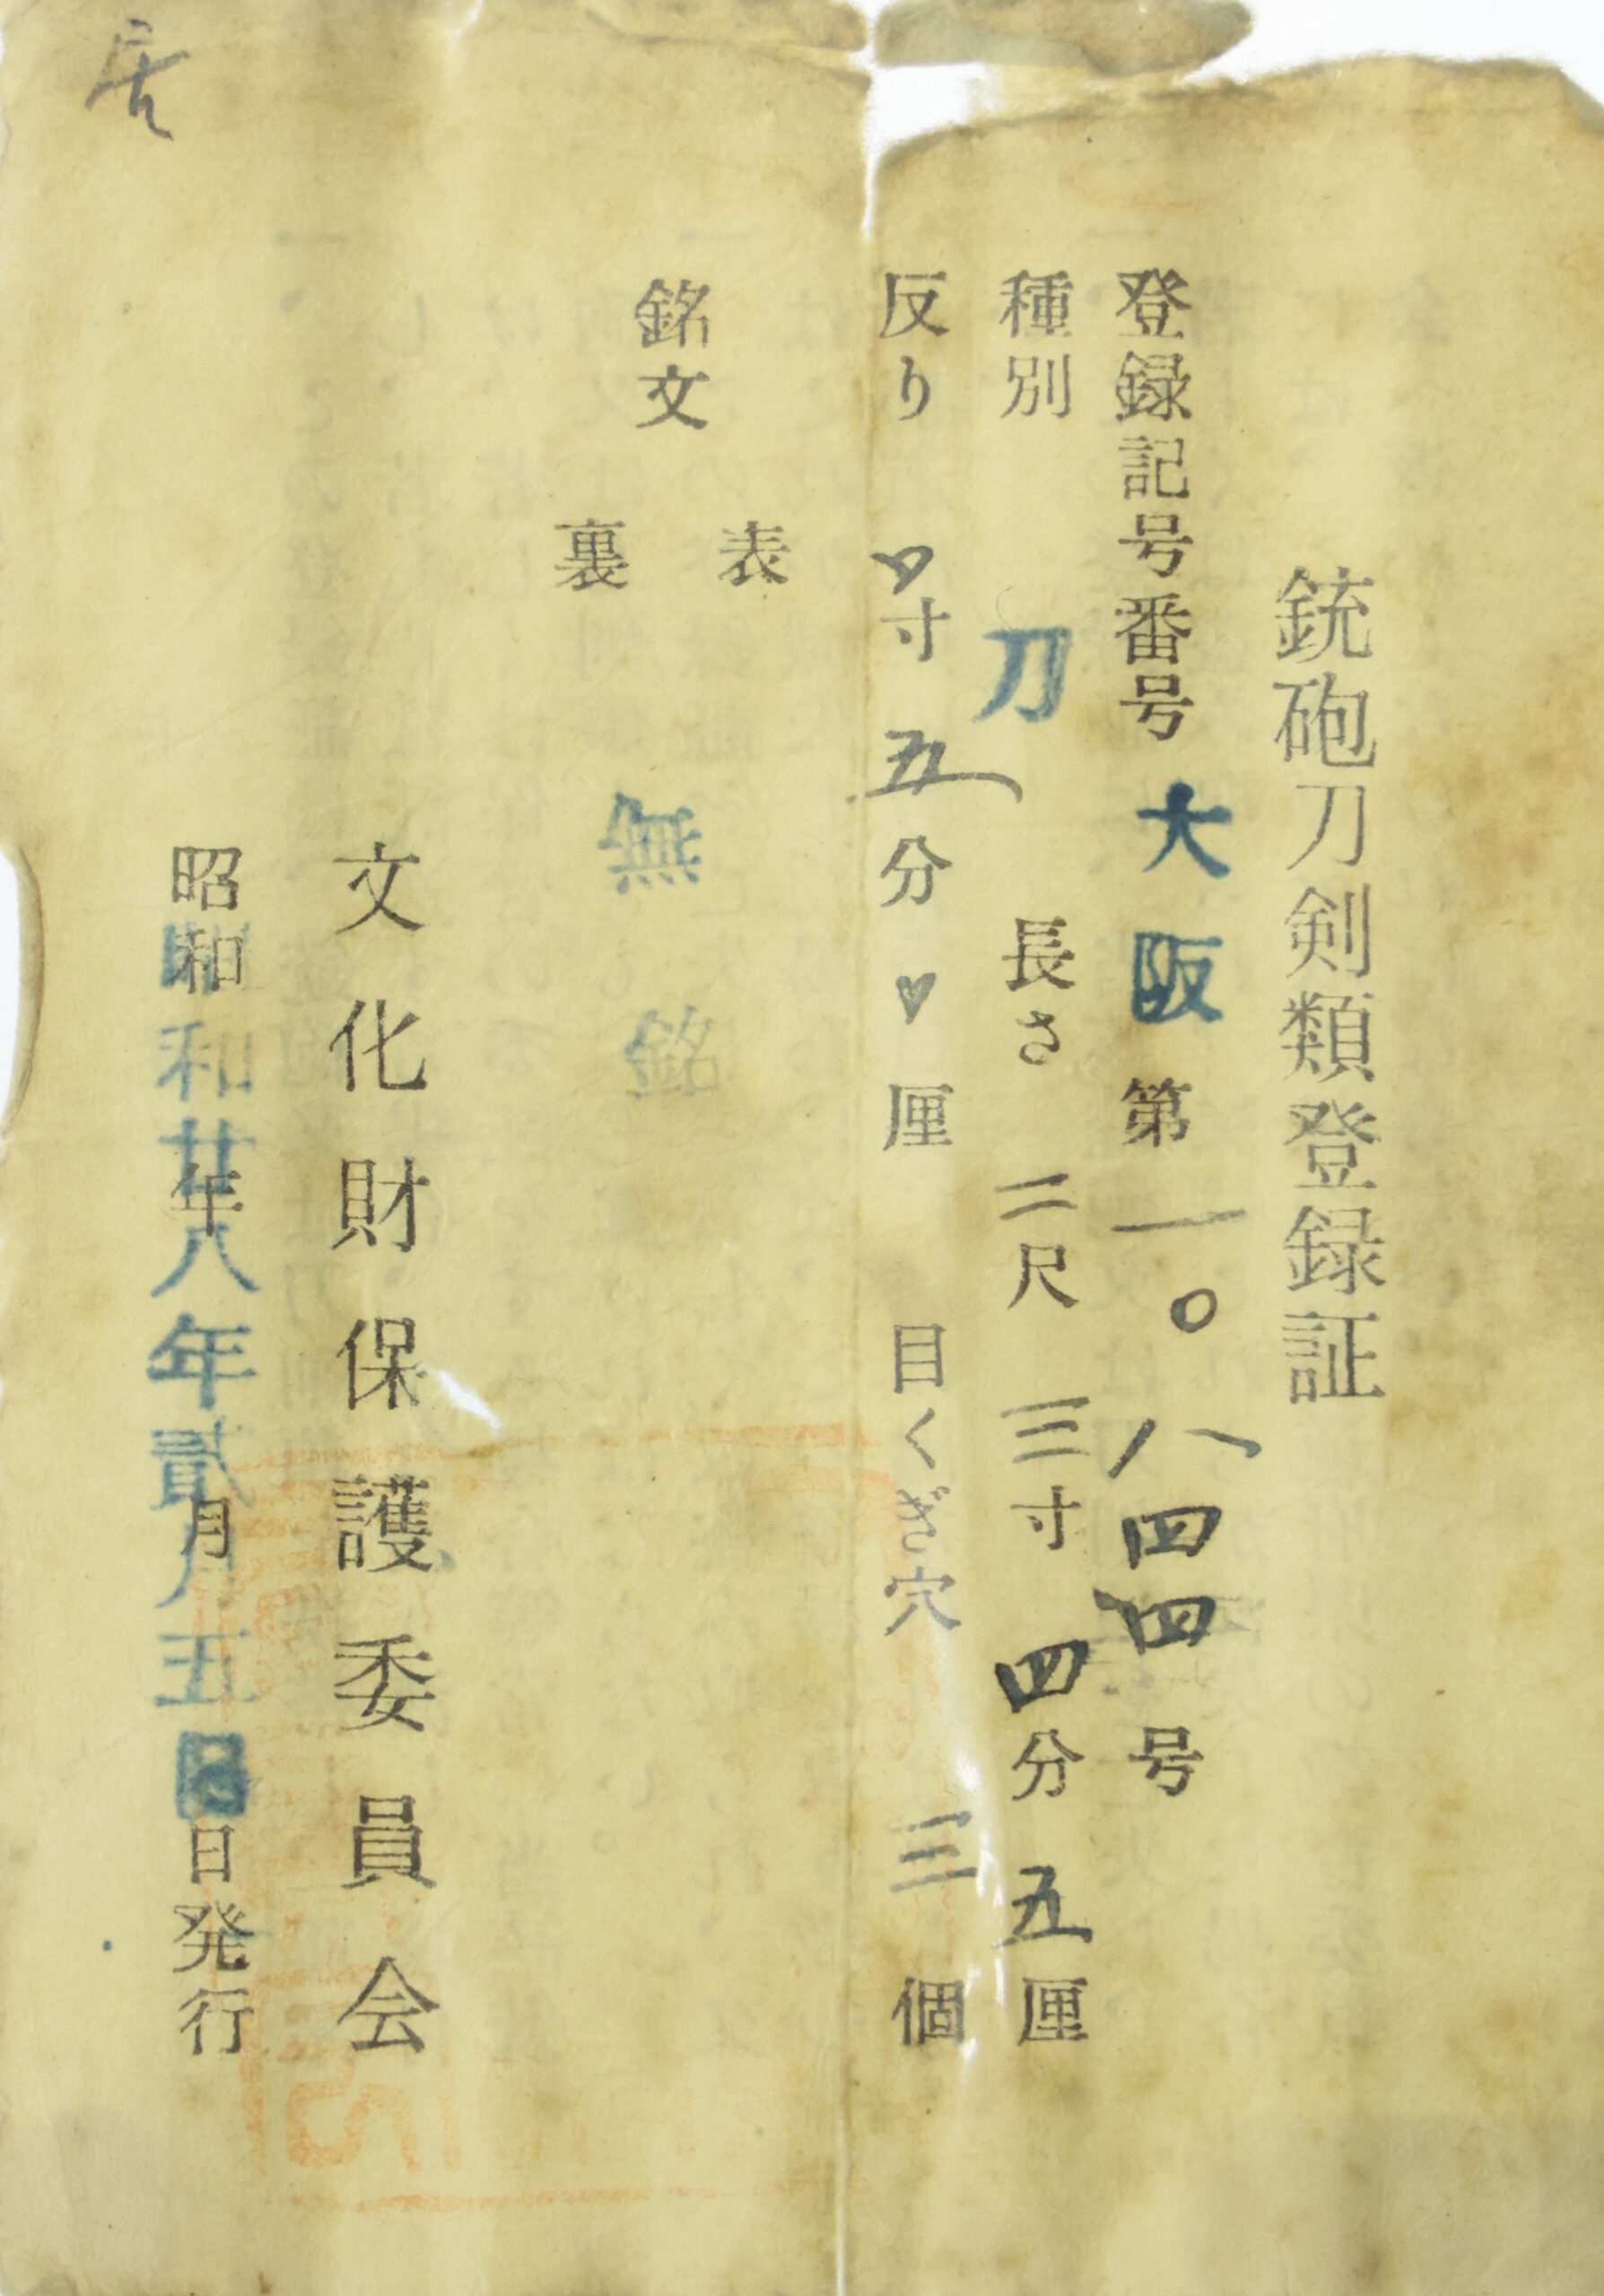 銃砲刀剣類登録証
登録記号番号 大阪 第一〇八四四号
種別 刀 長さ 二尺三寸四分五厘
反り 寸五分 厘 目くぎ穴 三個
銘文
表
無銘
裏
文化財保護委員会
昭和 年 月 日発行
昭和廿八年貳月五日